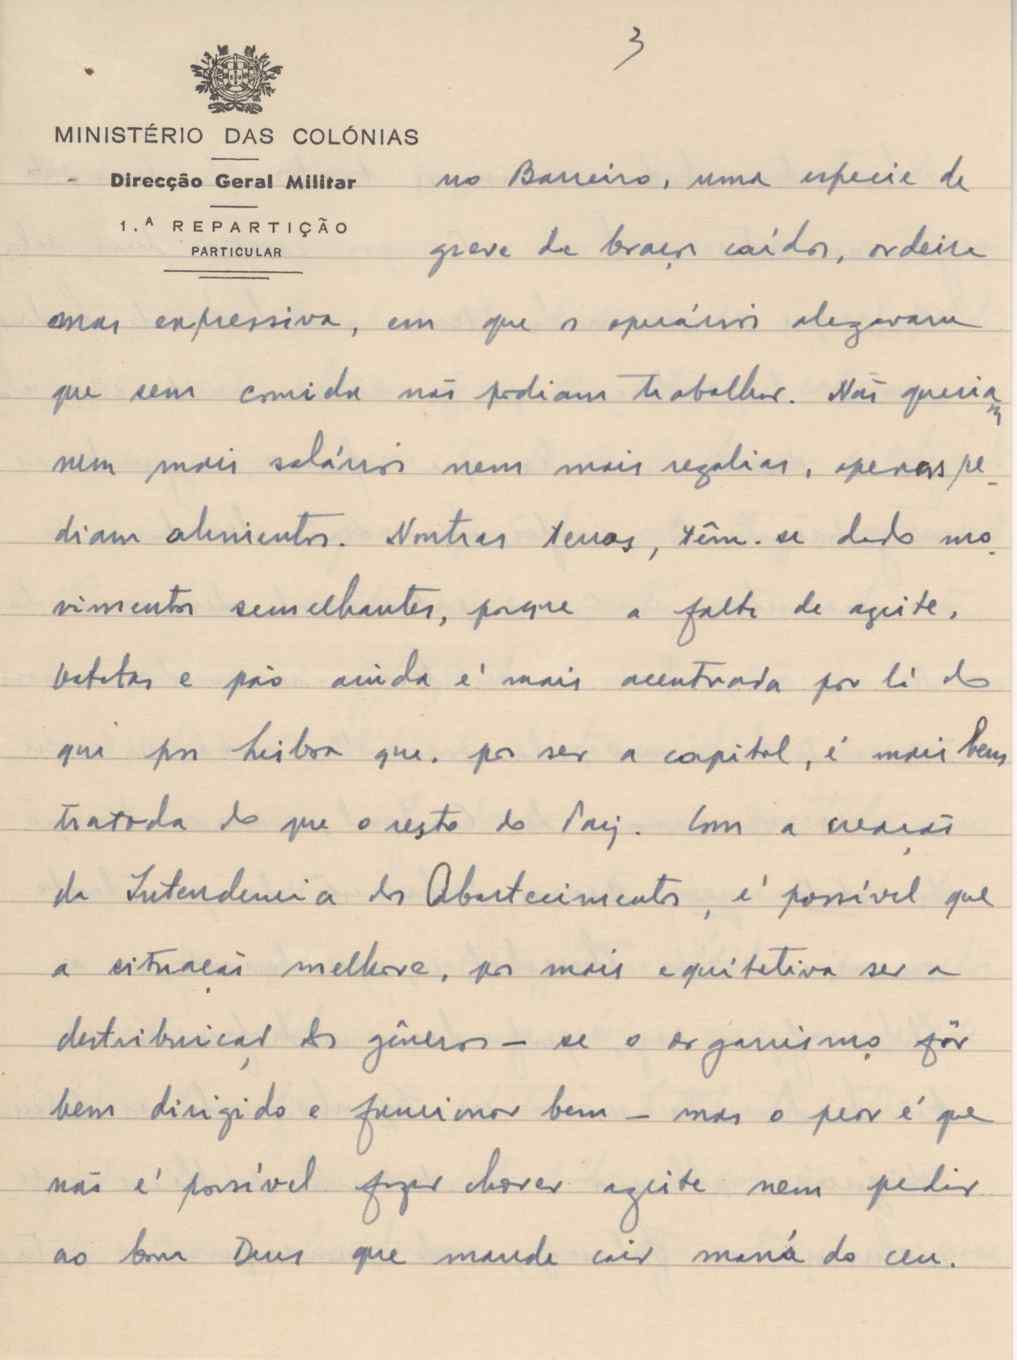 3
MINISTÉRIO DAS COLÓNIAS
Direcção Geral Militar
1.ª REPARTIÇÃO
PARTICULAR
no Barreiro, uma especie de
greve de braços caídos, ordeira
mas expressiva, em que os operários alegavam
que sem comida não podiam trabalhar. Não queriam
nem mais salários nem mais regalias, apenas pe-
diam alimentos. Noutras terras, têm-se dado mo-
vimentos semelhantes, porque a falta de azeite,
batatas e pão ainda é mais acentuada por lá do
que por Lisboa que, por ser a capital, é mais bem
tratada do que o resto do País. Com a creação
da Intendencia dos Abastecimentos, é possível que
a situação melhore, por mais equitativa ser a
destribuição dos géneros - se o organismo fôr
bem dirigido e funcionar bem - mas o peor é que
não é possível fazer chover azeite nem pedir
ao bom Deus que mande cair maná do ceu.